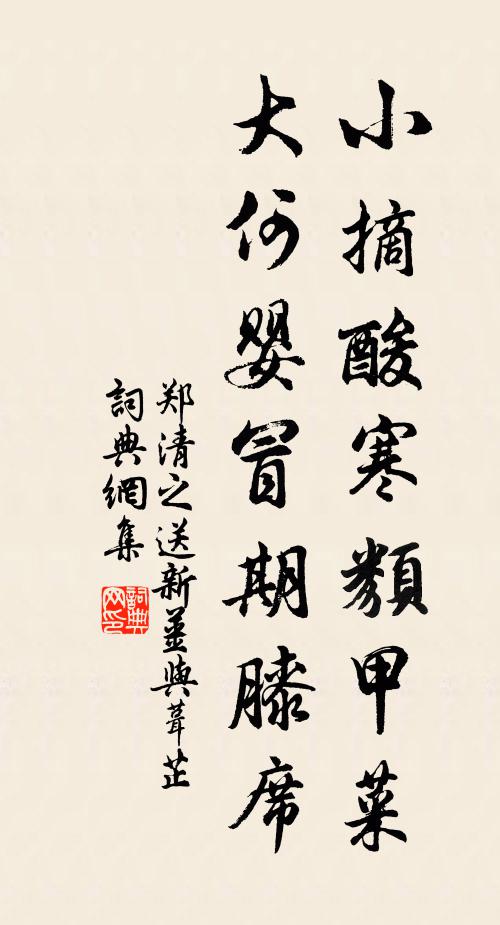 小摘酸寒類甲菜
大何嬰冒期膝席
郑清之送新薑與葺芷
詞典網集
詞典网印